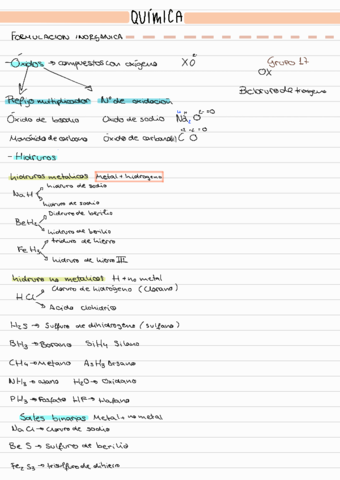 QUÍMICA
FORMULACIÓN INORGÁNICA
- Óxidos → compuestos con oxígeno XO
Grupo 17
OX
Prefijo multiplicador Nº de oxidación
Óxido de sodio Na₂O
Monóxido de carbono Óxido de carbono (II) CO
- Hidruros
hidruros metálicos Metal + hidrogeno
NaH hidruro de sodio
hidruro de sodio
BeH₂ Didruro de berilio
hidruro de berilio
FeH₃ triduro de hierro
hidruro de hierro III
hidruro no metalicos H + no metal
HCl Cloruro de hidrógeno (Clorano)
Acido clohidrico
H₂S → Sulfuro de dihidrogeno (sulfano)
BH₃ → Borano SiH₄ Silano
CH₄ → Metano AsH₃ Arsano
NH₃ → azano H₂O → Oxidano
PH₃ → Fosfato HF →
Sales binarias Metal + no metal
NaCl → Cloruro de sodio
BeS → Sulfuro de berilio
Fe₂S₃ → trisulfuro de dihierro